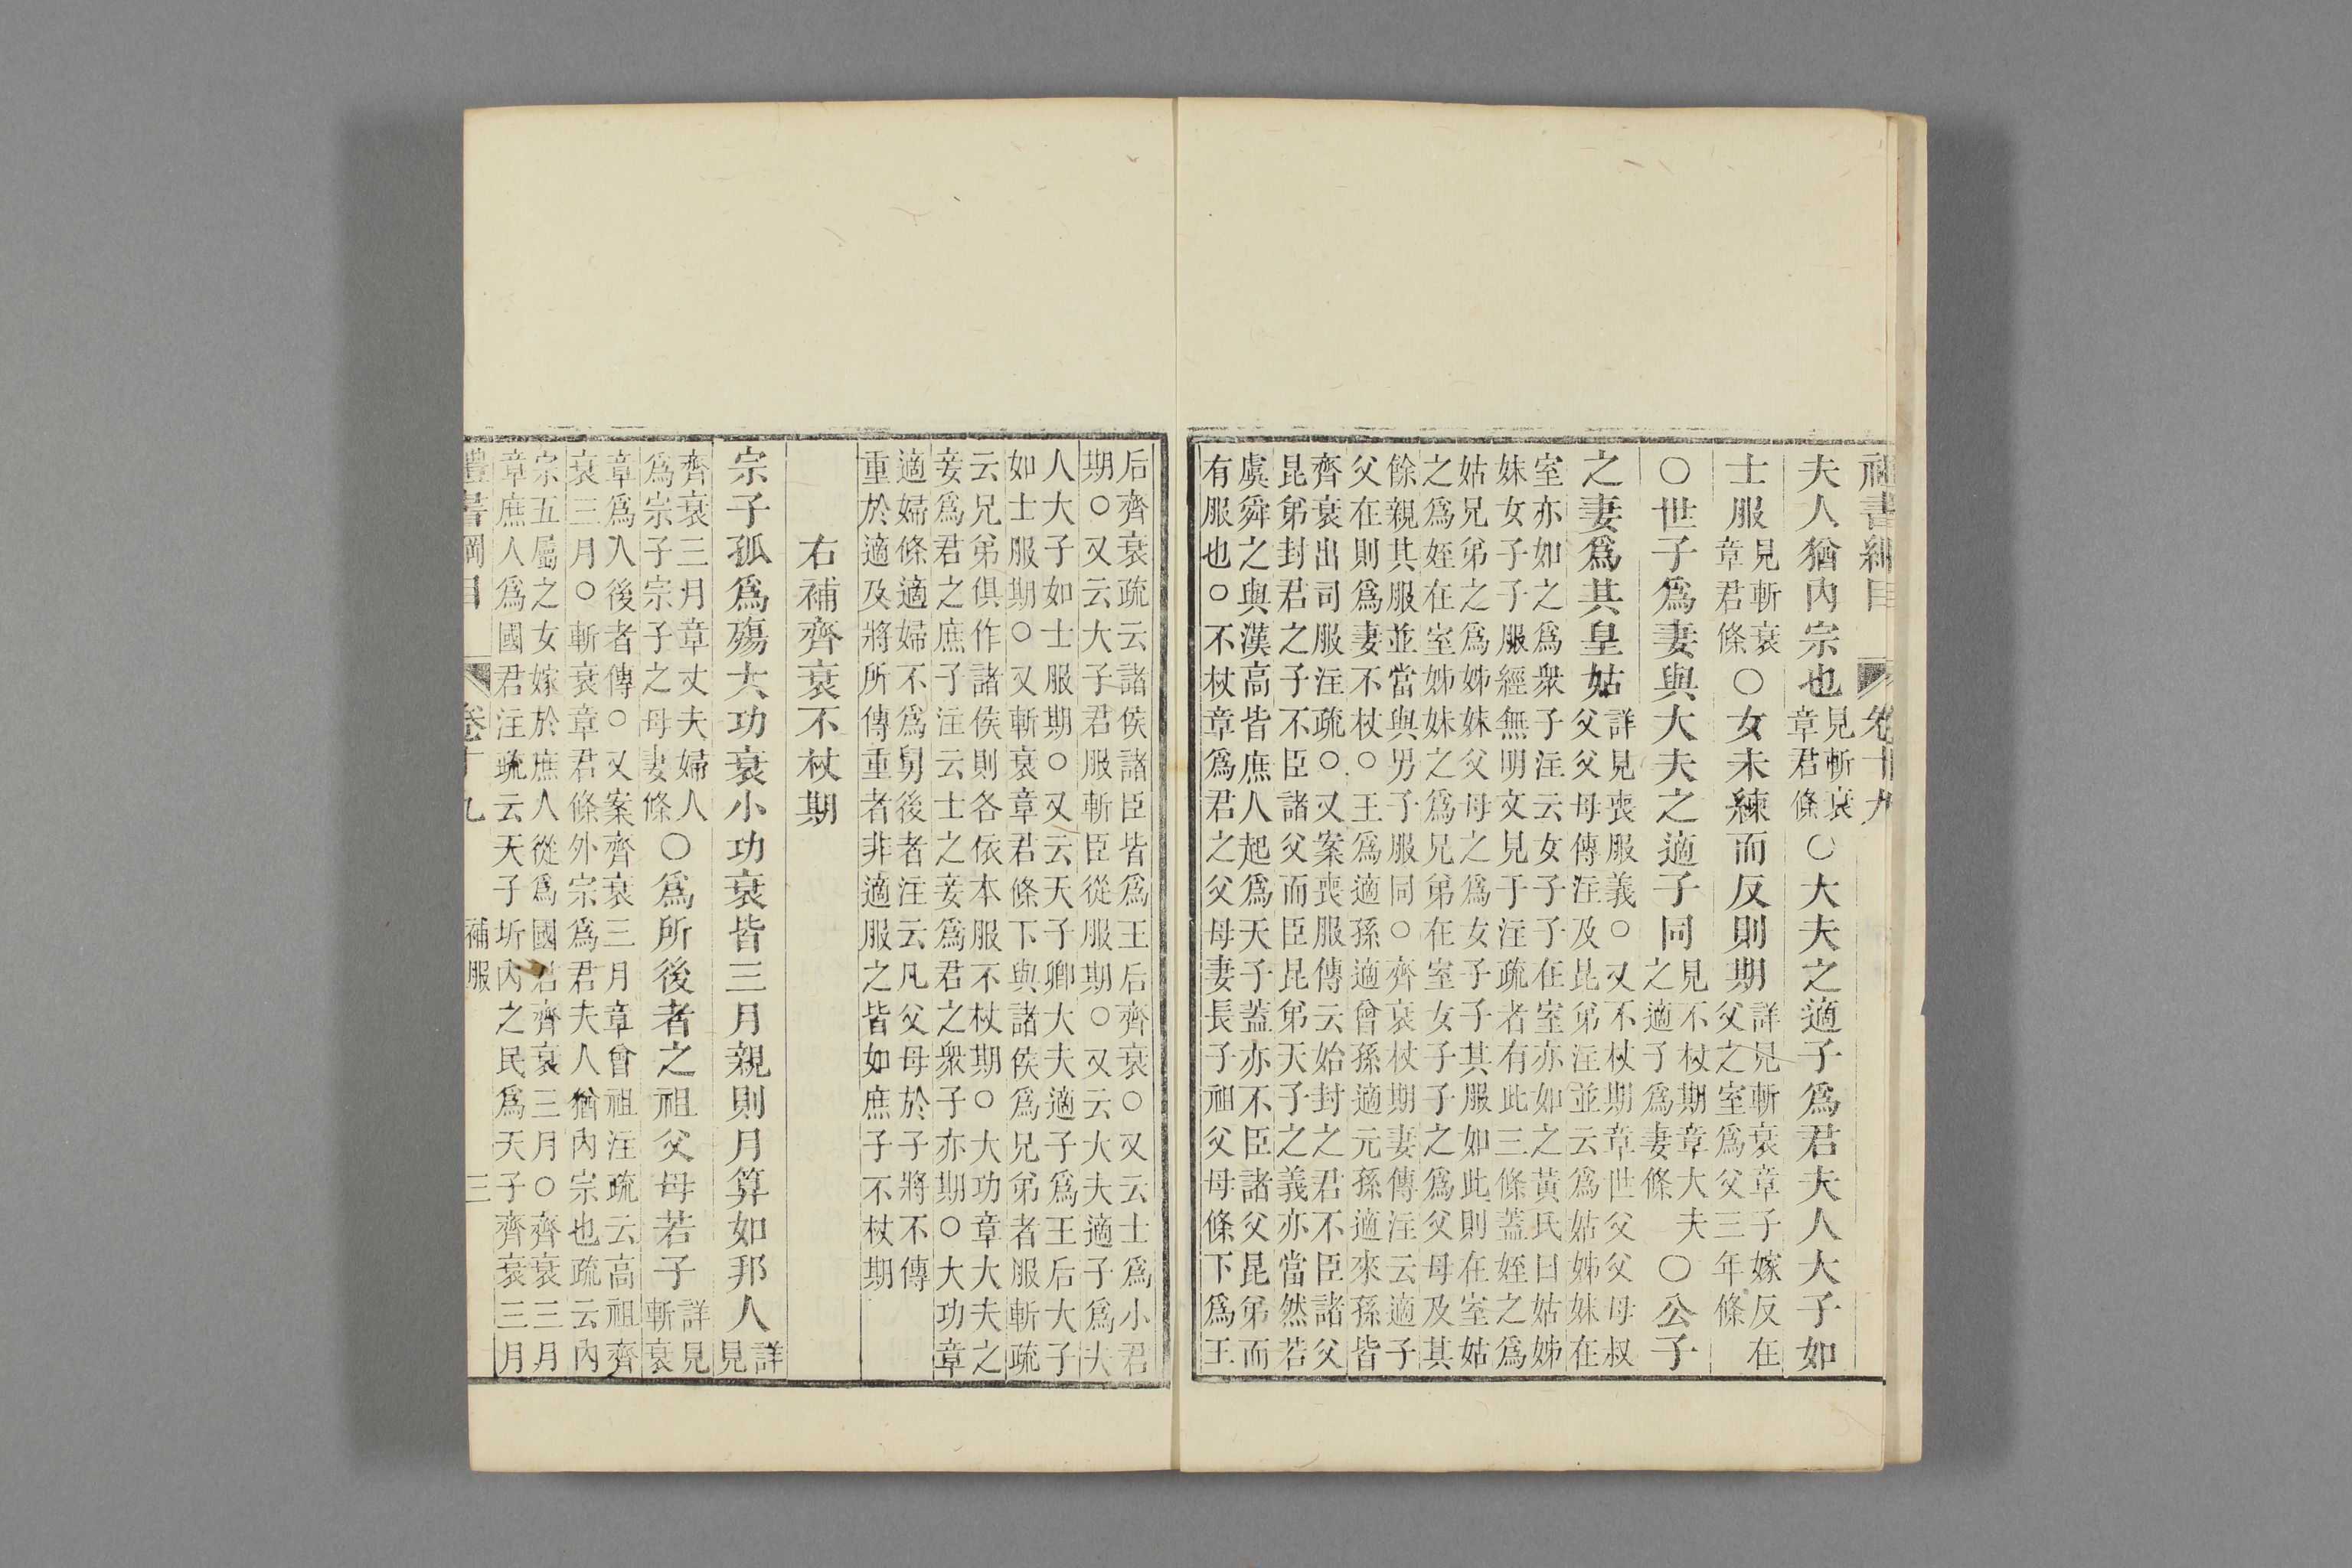 夫人猶內宗也見斬衰章君條○大夫之適子爲君夫人大子如
士服見斬衰章君條○女未練而反則期詳見斬衰章子嫁反在父之室爲父三年條
○世子爲妻與大夫之適子同見不杖期章大夫之適子爲妻條○公子
之妻爲其皇姑詳見喪服義○又不杖期章世父父母叔父父母傳注及昆弟注並云爲姑姊妹在
室亦如之爲衆子注云女子子在室亦如之黃氏曰姑姊
妹女子子服經無明文見于注疏者有此三條蓋姪之爲
姑兄弟之爲姊妹父母之爲女子子其服如此則在室姑
之爲姪在室姊妹之爲兄弟在室女子子之爲父母及其
餘親其服並當與男子服同○齊衰杖期妻傳注云適子
父在則爲妻不杖○王爲適孫適曾孫適元孫適來孫皆
齊衰出司服注疏○又案喪服傳云始封之君不臣諸父
昆弟封君之子不臣諸父而臣昆弟天子之義亦當然若
虞舜之與漢高皆庶人起爲天子蓋亦不臣諸父昆弟而
有服也○不杖章爲君之父母妻長子祖父母條下爲王
后齊衰疏云諸侯諸臣皆爲王后齊衰○又云士爲小君
期○又云大子君服斬臣從服期○又云大夫適子爲夫
人大子如士服期○又云天子卿大夫適子爲王后大子
如士服期○又斬衰章君條下與諸侯爲兄弟者服斬疏
云兄弟俱作諸侯則各依本服不杖期○大功章大夫之
妾爲君之庶子注云士之妾爲君之衆子亦期○大功章
適婦條適婦不爲舅後者注云凡父母於子將不傳
重於適及將所傳重者非適服之皆如庶子不杖期
右補齊衰不杖期
宗子孤爲殤大功衰小功衰皆三月親則月算如邦人詳見
齊衰三月章丈夫婦人爲宗子宗子之母妻條○爲所後者之祖父母若子詳見斬衰
章爲人後者傳○又案齊衰三月章曾祖注疏云高祖齊
衰三月○斬衰章君條外宗爲君夫人猶內宗也疏云內
宗五屬之女嫁於庶人從爲國君齊衰三月○齊衰三月
章庶人爲國君注疏云天子圻內之民爲天子齊衰三月
補服
三